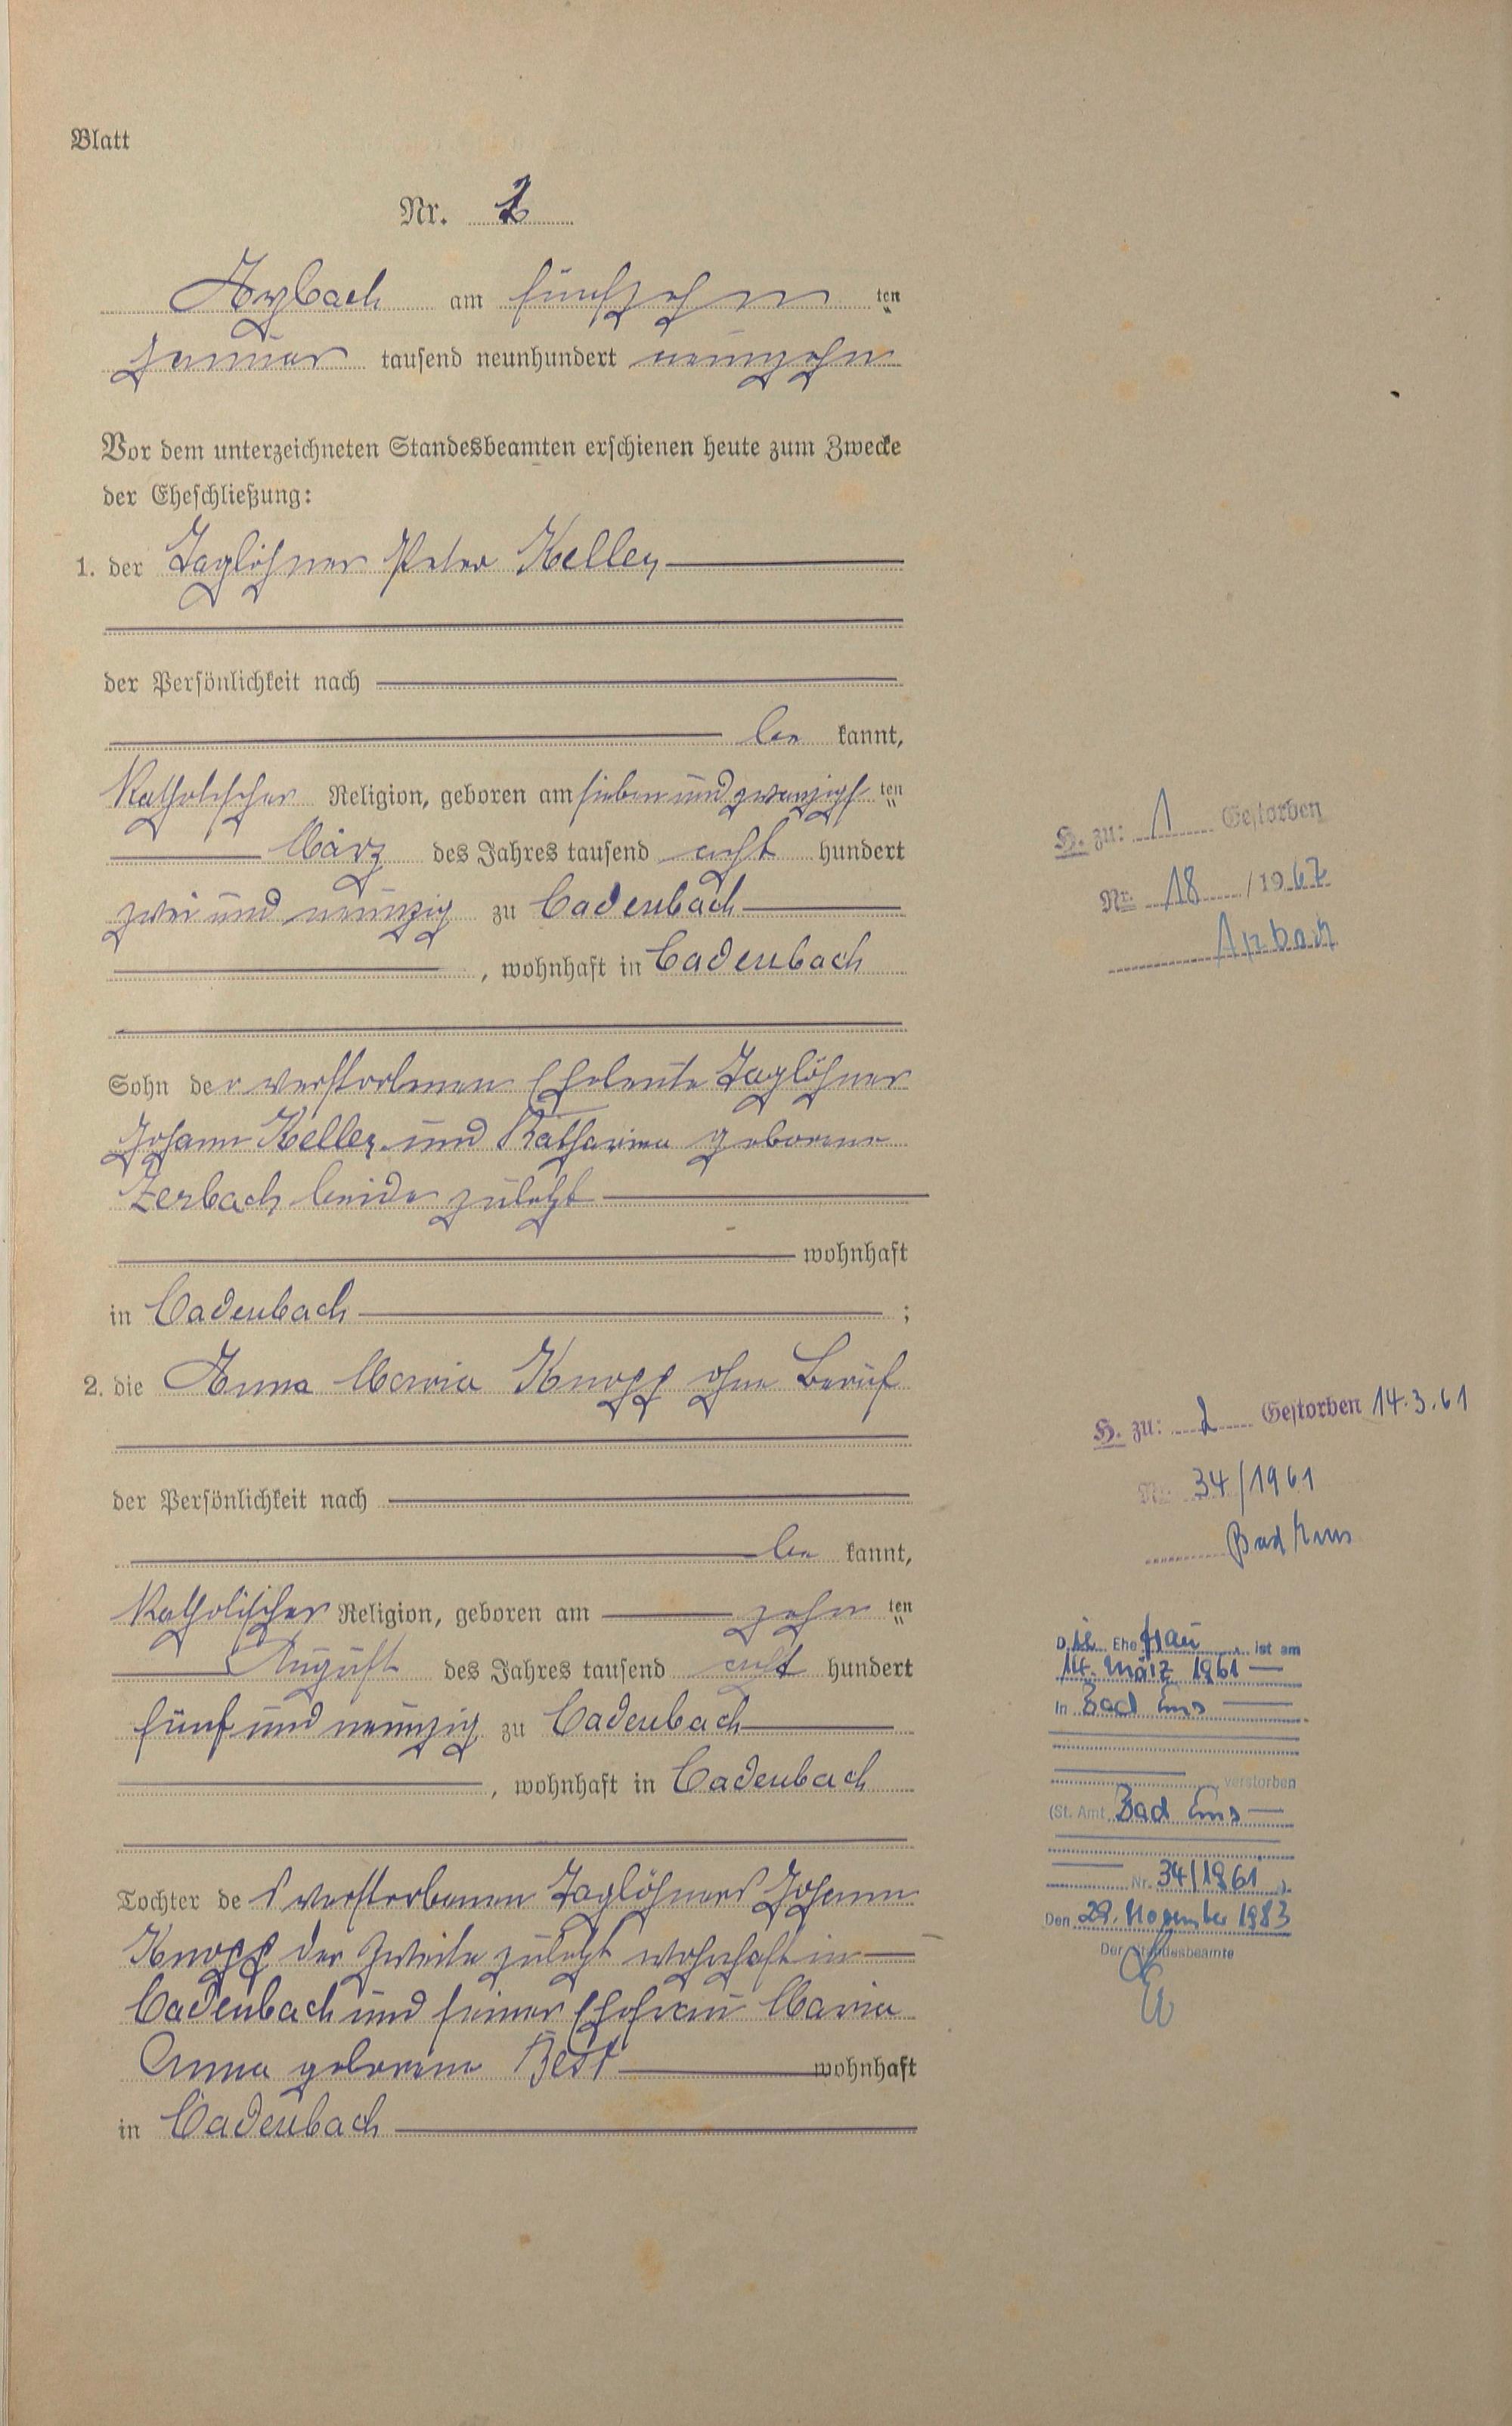 Blatt
Nr. 2
Arzbach am fünfzehn ten
Januar tausend neunhundert neunzehn
Vor dem unterzeichneten Standesbeamten erschienen heute zum Zwecke
der Eheschließung:
1. der Taglöhner Peter Keller
der Persönlichkeit nach
be kannt,
Katholischer Religion, geboren am sieben und zwanzigs ten
März des Jahres tausend acht hundert
zwei und neunzig zu Cadenbach
, wohnhaft in Cadenbach
Sohn der verstorbenen Eheleute Taglöhner
Johann Keller und Katharina geborene
Zerbach beide zuletzt
wohnhaft
in Cadenbach ;
2. die Anna Maria Knopp ohne Beruf
der Persönlichkeit nach
be kannt,
Katholischer Religion, geboren am zehn ten
August des Jahres tausend acht hundert
fünf und neunzig zu Cadenbach
, wohnhaft in Cadenbach
Tochter des verstorbenen Taglöhners Johann
Knopp der Zweite zuletzt wohnhaft in
Cadenbach und seiner Ehefrau Maria
Anna geborene Best wohnhaft
in Cadenbach
H. zu: 1 Gestorben
Nr. 18 / 1967
Arzbach
H. zu: 2 Gestorben 14.3.61
Nr. 34/1961
Bad Ems
Die Ehefrau ist am
14. März 1961
in Bad Ems
verstorben
(St. Amt Bad Ems
Nr. 34/1961 ).
Den 29. November 1983
Der Standesbeamte